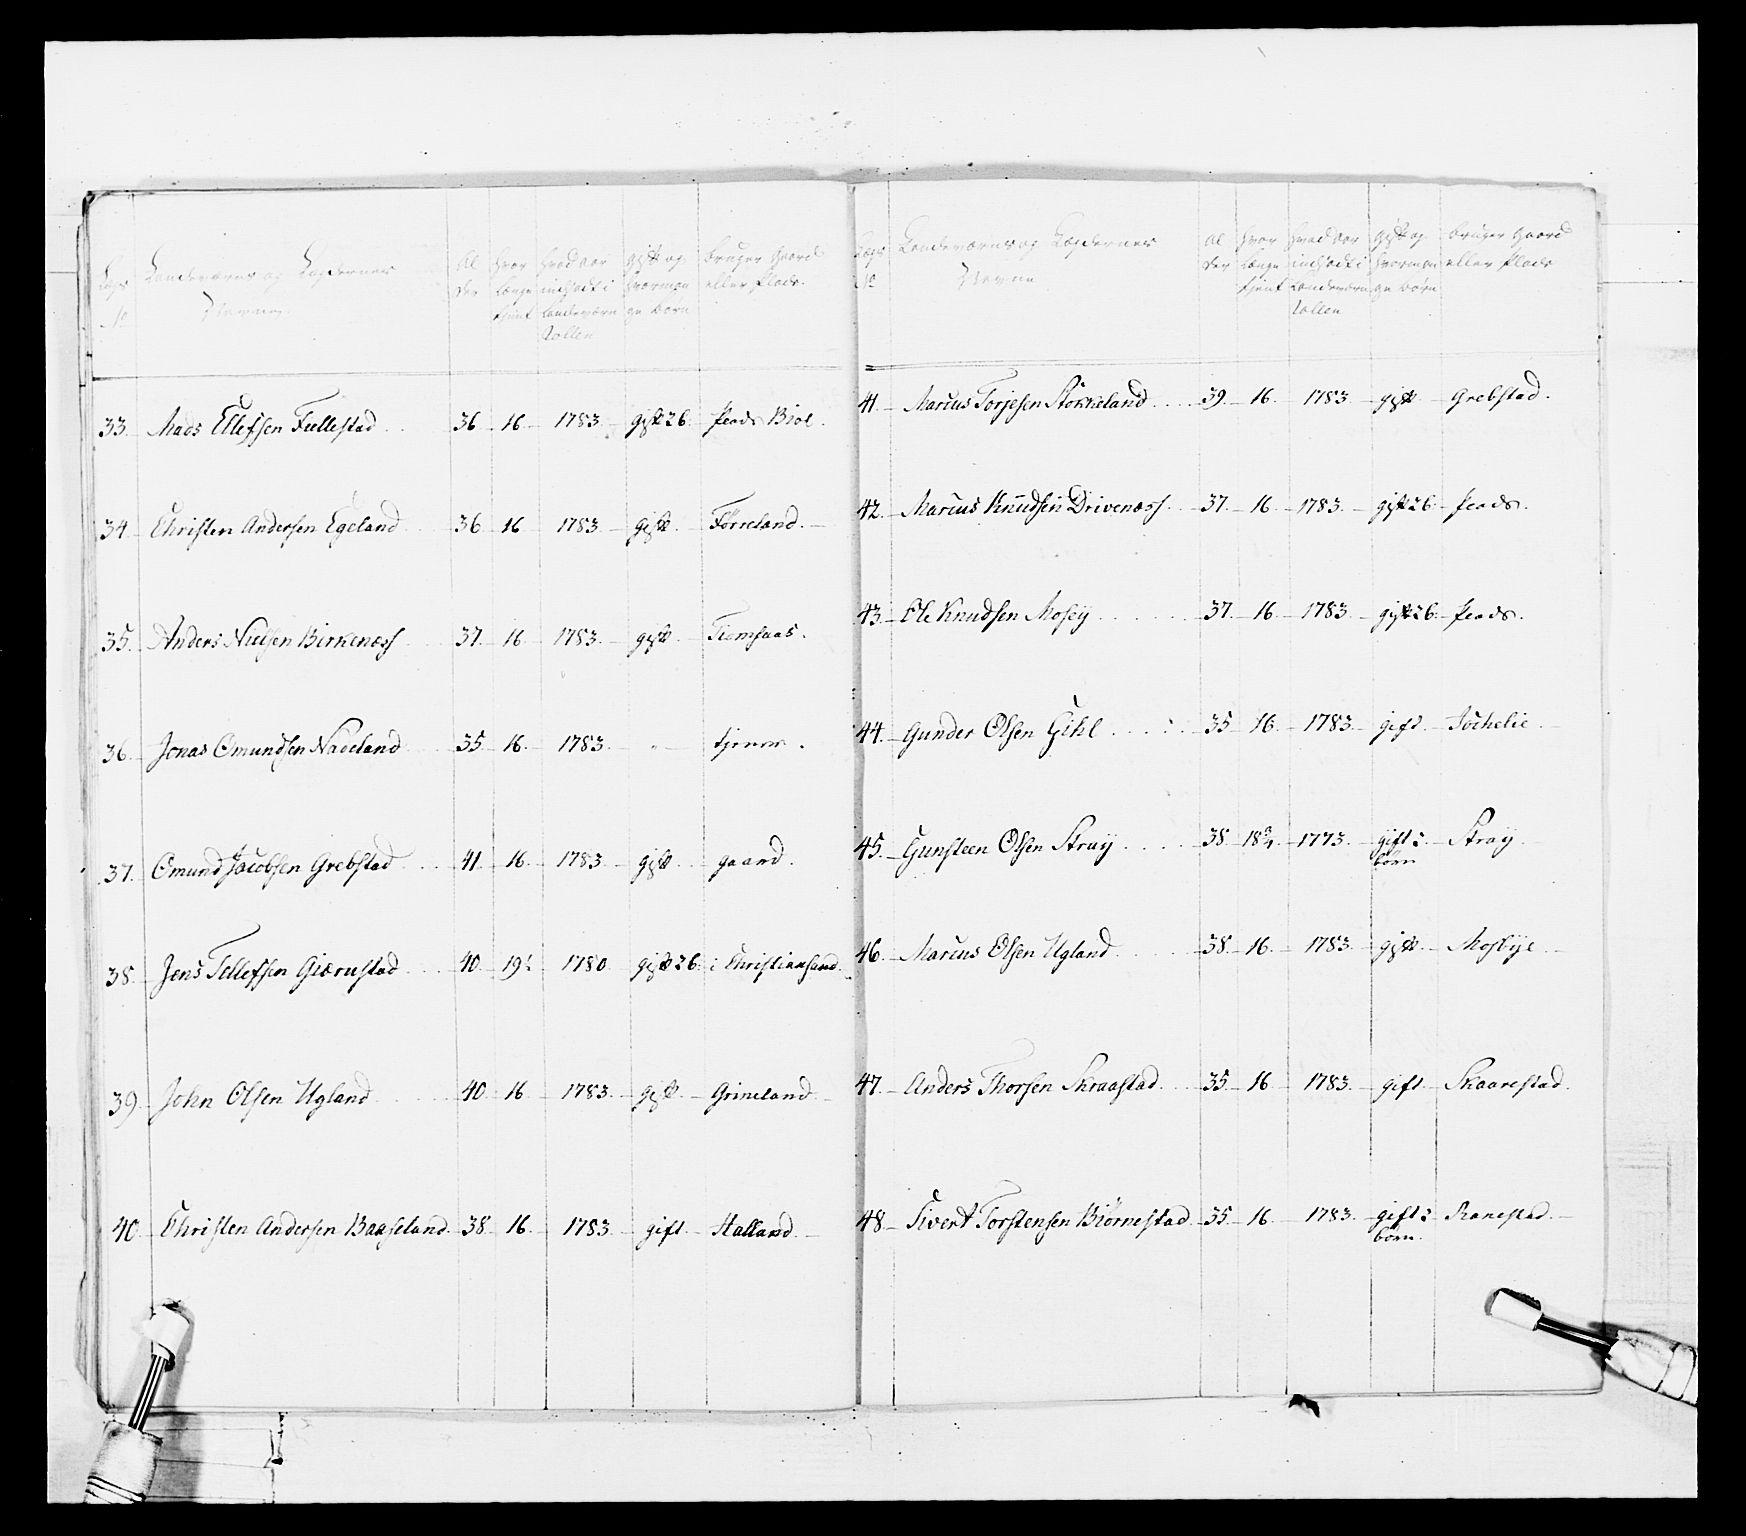 Lægs No
Landeværns og Lægdernes Navne
Alder
hvor længe tient
hvad aar indsadt i Landeværns Rollen
gift og hvormange børn
bruger Gaard eller Plads.
33. Mads Ellefsen Fullestad 36 16 1783. gift 2 b. Plads Biol.
34. Christen Andersen Egeland 36 16 1783 gift. Førreland.
35. Anders Nielsen Birkenæss 37. 16 1783. gift.
36. Jonas Omundsen Nadeland 35. 16. 1783. " tjener.
37. Omund Jacobsen Grebstad 41. 16. 1783 gift. gaard.
38. Jens Tellefsen Giærustad 40 19½ 1780 gift 2 b. i Christiansand.
39. John Olsen Ugland 40. 16. 1783. gift. Grineland
40. Christen Andersen Baaseland 38. 16. 1783 gift. Halland.
Lægs No
Landeværns og Lægdernes Navne
Alder
hvor længe tjent
hvad aar indsadt i Landeværn Rollen
gift og hvormange børn
bruger Gaard eller Plads
41. Marcus Torjesen Stokkeland 39. 16. 1783 gift Grebstad.
42. Marcus Knudsen Drivenæss. 37. 16. 1783. gift 2 b. Plads.
43. Ole Knudsen Mosey 37. 16. 1783. gift 2 b. Plads.
44. Gunder Olsen Gihl 35 16. 1783. gift.
45. Gunsteen Olsen Stray 38 18¾ 1773. gift 2 Stray
børn
46. Marcus Olsen Ugland 38. 16. 1783. gift Mosbye
47. Anders Thorsen Skraastad 35 16 1783. gift Skaarestad.
48. Sivert Torstensen Biörnestad 35 16 1783. gift 2 Ranestad.
børn.